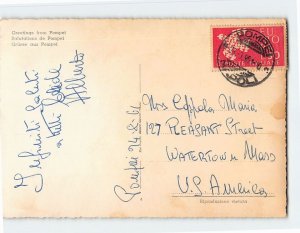 Greetings from Pompei
Salutations de Pompei
Grüsse aus Pompei
Infiniti saluti
a tutti
Alberto
Pompei 24-8-61
POMPEI
POSTE
Mrs Coppola Maria
127 PLEASANT STREET
WATERTOWN Mass
U.S. America
Riproduzione vietata